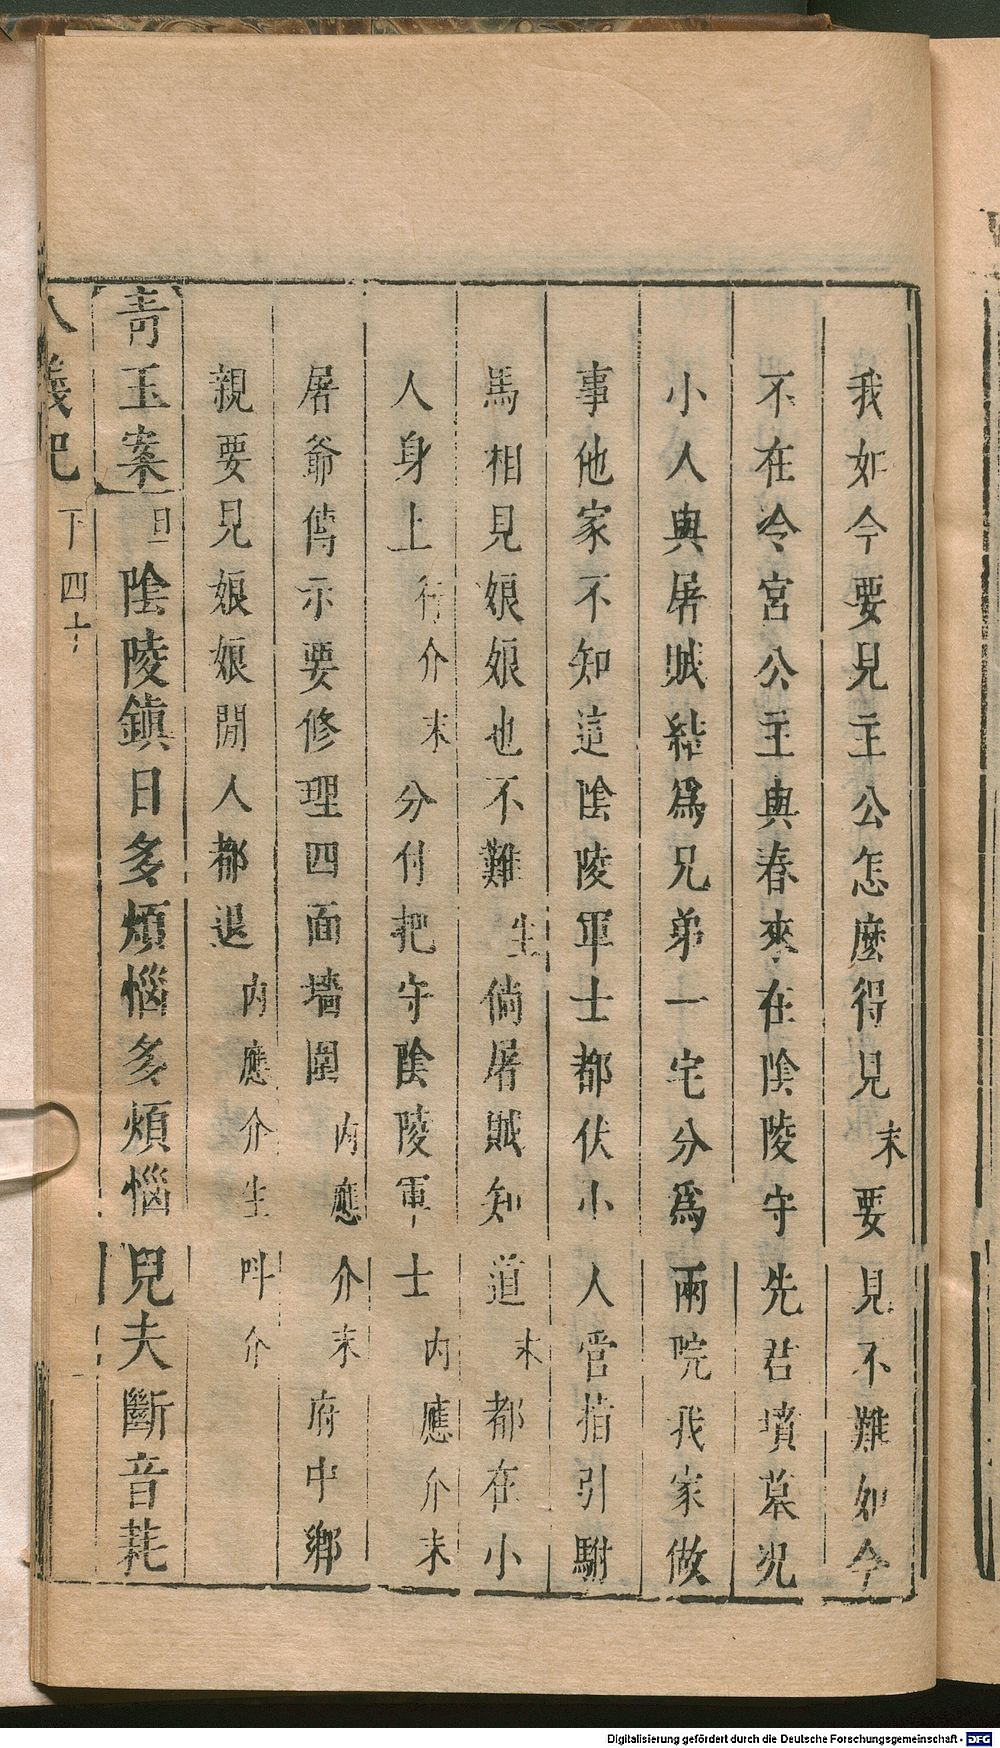 我如今要見主公怎麼得見末要見不難如今
不在令宮公主與春來在陰陵守先君墳墓況
小人與屠賊結爲兄弟一宅分爲兩院我家做
事他家不知這陰陵軍士都伏小人管指引駙
馬相見娘娘也不難生倘屠賊知道末都在小
人身上行介末分付把守陰陵軍士內應介末
屠爺傳示要修理四面墻圍內應介末府中鄉
親要見娘娘閒人都退內應介生呌介
青玉案旦陰陵鎮日多煩惱多煩惱兒夫斷音耗
八義記下四十
Digitalisierung gefördert durch die Deutsche Forschungsgemeinschaft - DFG